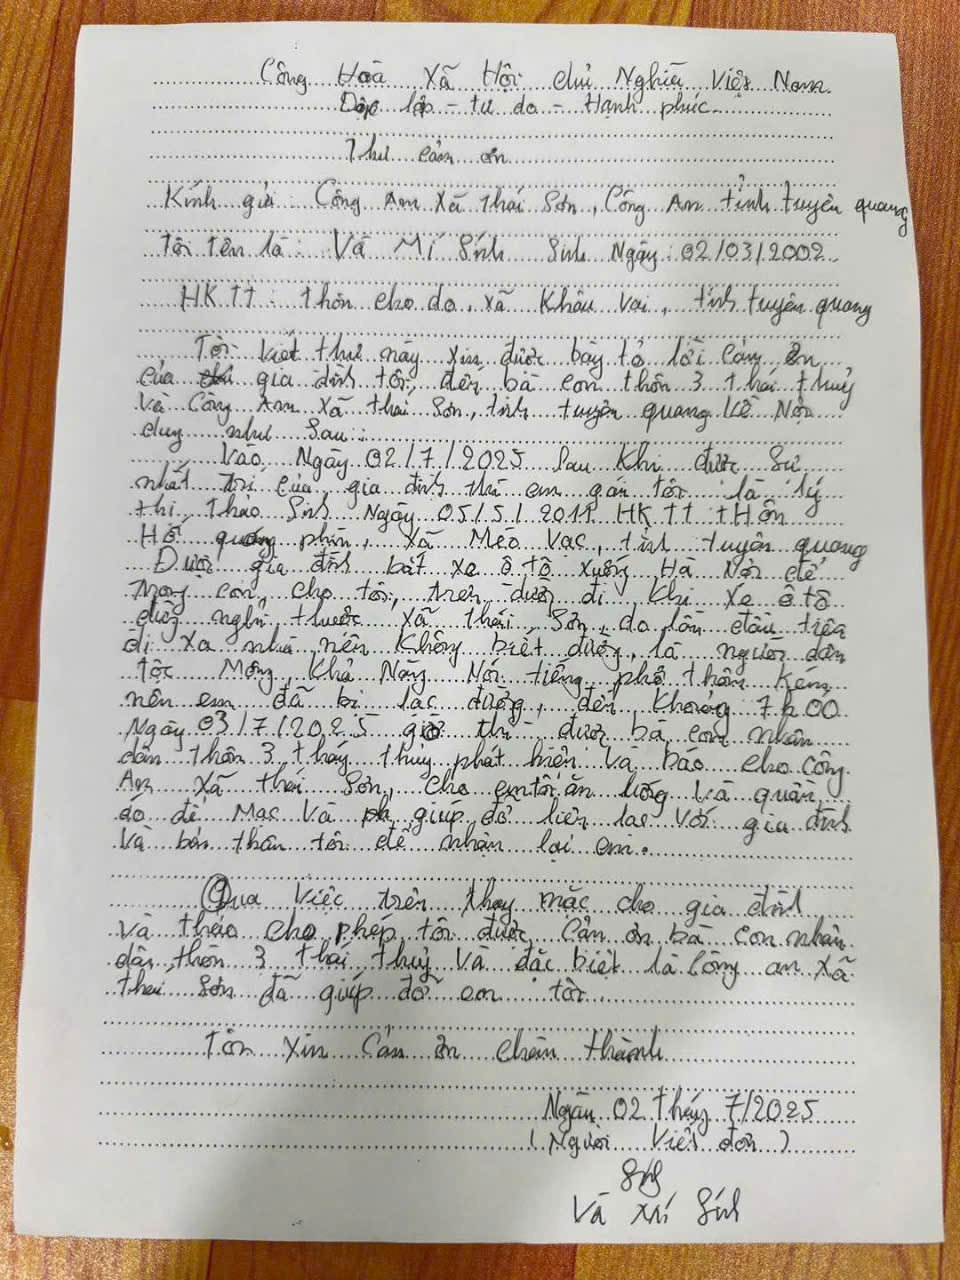 Công Hoà Xã Hội chủ Nghĩa Việt Nam
Độc lập - tự do - Hạnh phúc
Thư cảm ơn
Kính gửi : Công An Xã Thái Sơn, Công An tỉnh tuyên quang
Tôi tên là : Và Mí Sính Sinh Ngày : 02/03/2002
HKTT : thôn cho do, xã Khâu vai, tỉnh tuyên quang
Tôi viết thư này xin được bày tỏ lời cảm ơn
của gia đình tôi, đến bà con thôn 3 thái thuỷ
và Công An xã thái Sơn, tỉnh tuyên quang về Nội
dung như Sau :
Vào Ngày 02/7/2025 Sau Khi được sự
nhất trí của gia đình thì em gái tôi là lý
thị thảo Sinh Ngày 05/5/2011 HKTT tHôn
Hố quáng phìn, xã Mèo Vạc, tỉnh tuyên quang
Được gia đình bắt xe ô tô xuống Hà Nội để
trông con cho tôi, trên đường đi Khi xe ô tô
dừng nghỉ thuộc xã thái Sơn, do lần đầu tiên
đi xa nhà nên Không biết đường, là người dân
tộc Mông, Khả Năng Nói tiếng phổ thông Kém
nên em đã bị lạc đường, đến Khoảng 7h00
Ngày 03/7/2025 giờ thì được bà con nhân
dân thôn 3 tháy thuỷ phát hiện và báo cho công
An xã thái Sơn, cho em tôi ăn uống và quần
áo để Mac và giúp đỡ liên lạc với gia đình
và bản thân tôi để nhận lại em.
Qua việc trên thay mặc cho gia đình
và thảo cho phép tôi được cản ơn bà con nhân
dân thôn 3 thái thuỷ và đặc biệt là công an xã
thái Sơn đã giúp đỡ em tôi
Tôn xin Cản ơn chân thành
Ngày 02 tháng 7/2025
( Người viết đơn )
Và Sính